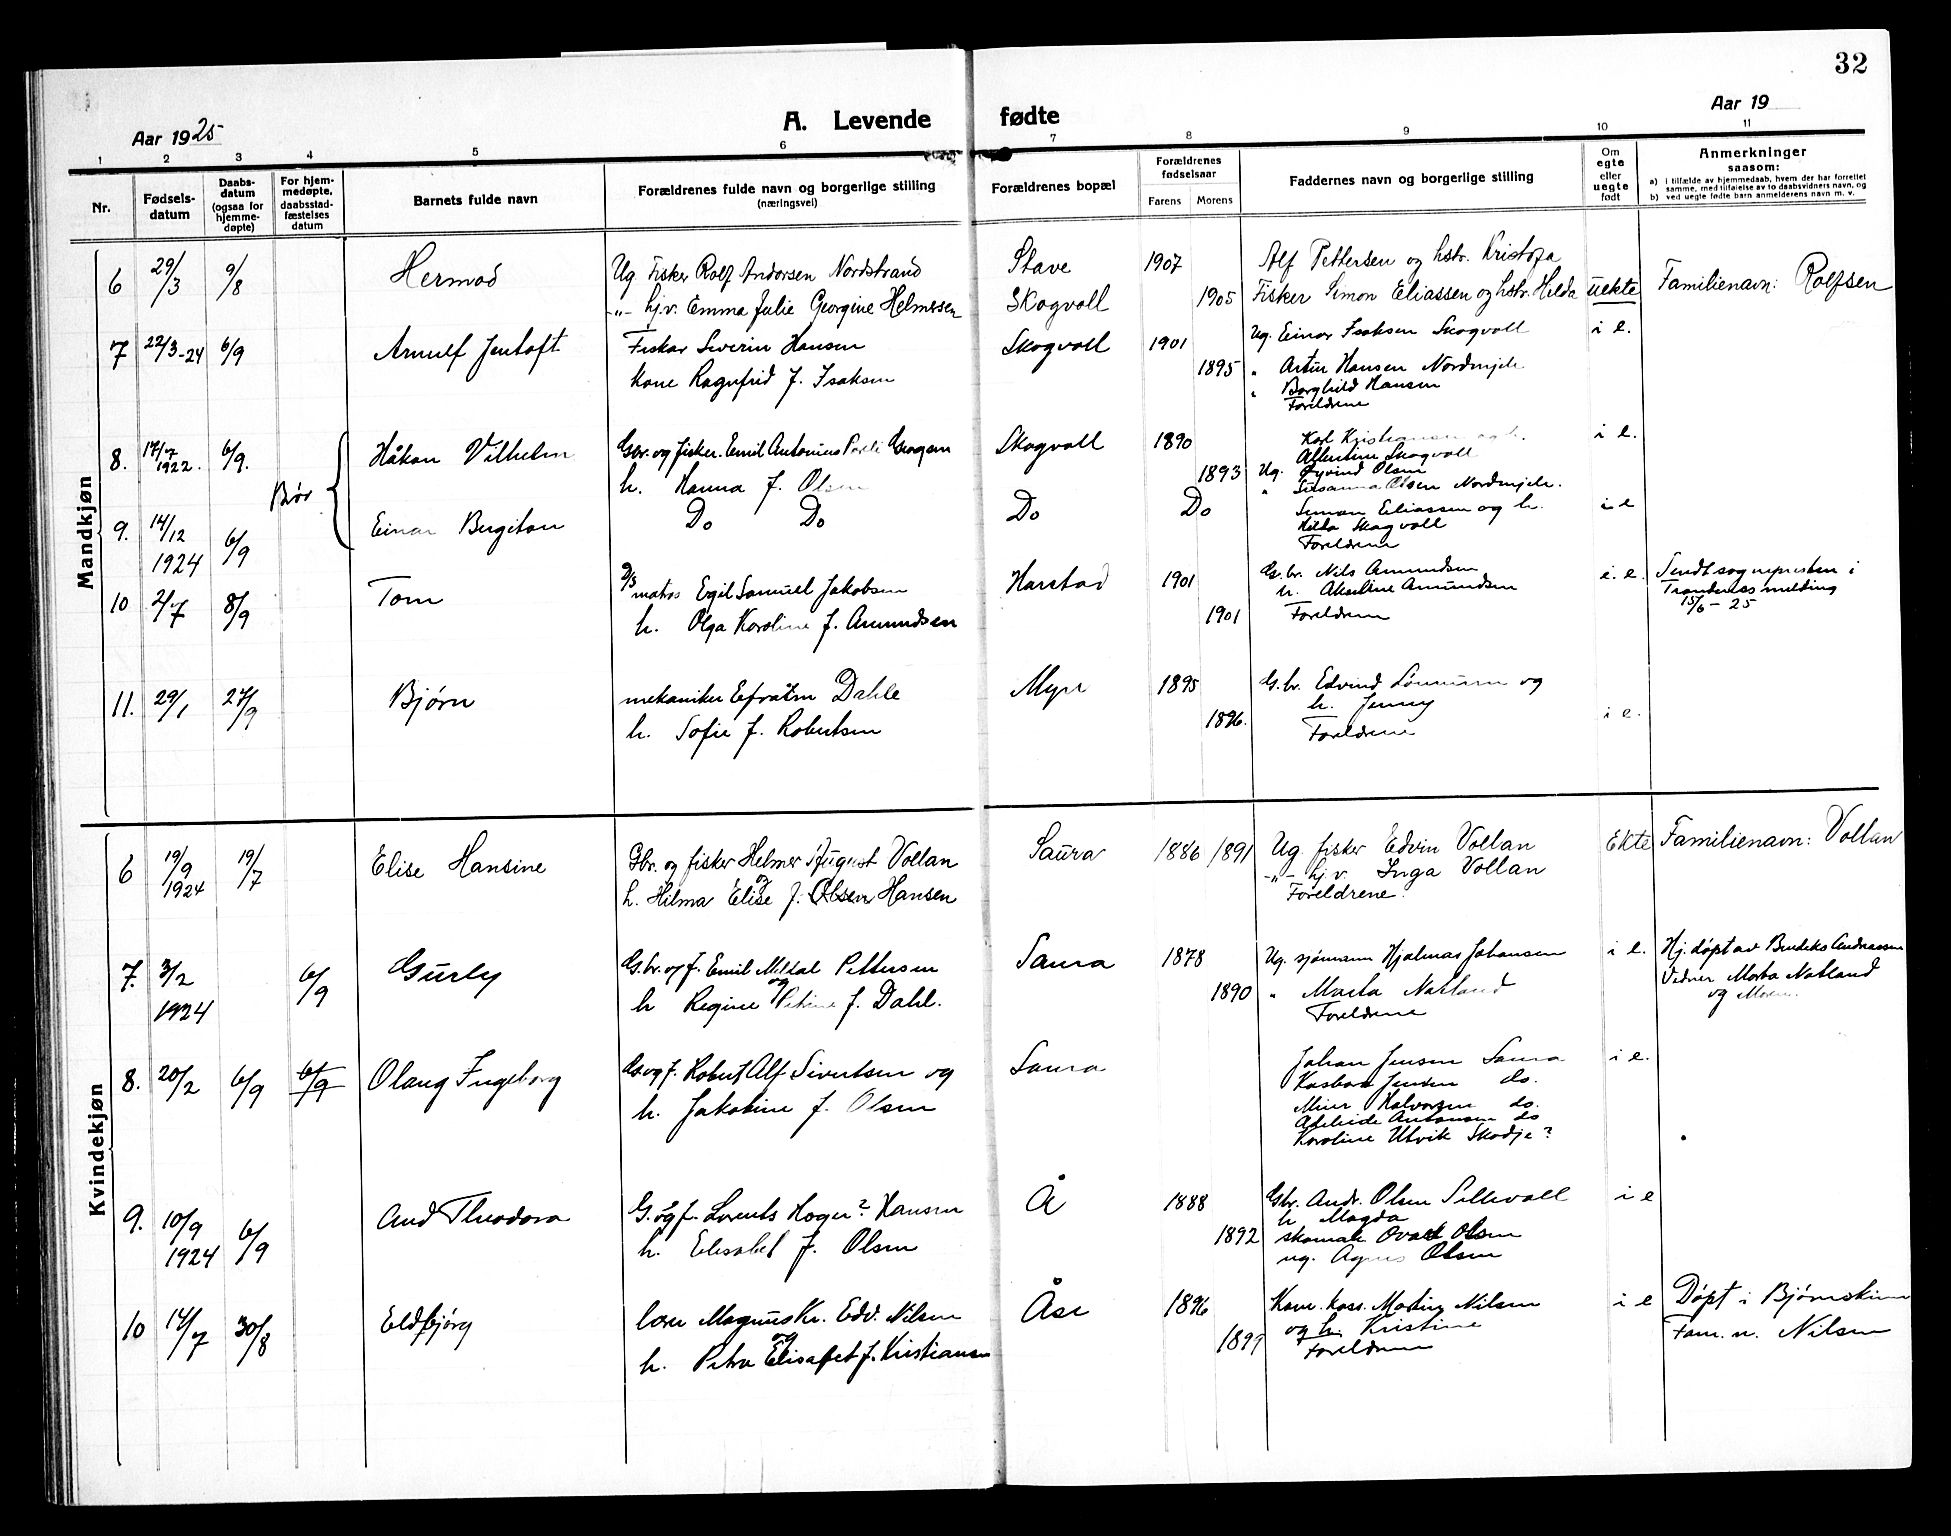 32
Aar 1925
A. Levende fødte
Aar 19
1 2 3 4 5 6 7 8 9 10 11
Nr.
Fødsels-
datum
Daabs-
datum
(ogsaa for
hjemme-
døpte)
For hjem-
medøpte,
daabsstad-
fæstelses
datum
Barnets fulde navn
Forældrenes fulde navn og borgerlige stilling
(næringsvei)
Forældrenes bopæl
Forældrenes
fødselsaar
Farens Morens
Faddernes navn og borgerlige stilling
Om
egte
eller
uegte
født
Anmerkninger
saasom:
a) i tilfælde av hjemmedaab, hvem der har forrettet
samme, med tilføielse av to daabsvidners navn, og
b) ved uegte fødte barn anmelderens navn m. v.
Mandkjøn
6 29/3 9/8 Hermod
Ug Fisker Rolf Andorsen Nordstrand
-"- hj.v. Emma Julie Georgine Helmersen
Stave 1907
Skogvoll 1905
Alf Pettersen og hstr. Kristofa
Fisker Simon Eliassen og hstr. Hilda
uekte
Familienavn: Rolfsen
7 22/3-24 6/9 Arnulf Jentoft
Fisker Severin Hansen
Kone Ragnfrid f. Isaksen
Skogvoll 1901
1895
Ug. Einar Isaksen Skogvoll
" Artur Hansen Nordmjele
" Borghild Hansen
Foreldrene
i e.
8. 17/7 1922. 6/9. Brør Håkon Vilhelm
Gbr. og fisker. Emil Antonius Georgsen
h. Hanna f. Olsen
Skogvoll 1890
1893
Karl Kristiansen
Albertine Skogvoll
Ug. Øyvind Olsen
" Susanna Olsen Nordmjele.
i e.
9. 14/12 1924 6/9 Einar Bergiton
Do Do
Do Do
Simon Eliassen og h.
Hilda Skogvoll
Foreldrene
i e
10 2/7 8/9 Tom
matros Egil Samuel Jakobsen
h. Olga Karoline f. Amundsen
Harstad 1901
1901
G.br. Nils Amundsen
h. Akseline Amundsen
Foreldrene
i. e.
Sendt sognepresten i
Tranøenes melding
15/6 - 25
11. 29/1 27/9 Bjørn
mekaniker Efraim Dahle
h. Sofie f. Robertsen
Myre 1895
1896.
G.br. Edvind Lønnum og
h. Jenny
Foreldrene
i e.
Kvindekjøn
6 19/9 1924 19/7 Elise Hansine
Gbr. og fisker Helmer August Vollan
og
h. Hilma Elise f. Olsen Hansen
Saura 1886 1891
Ug. fisker Edvin Vollan
-"- hj.v. Inga Vollan
Foreldrene.
Ekte
Familienavn: Vollan
7. 3/2 1924 6/9 Gurly
G.br. og f. Emil Meldal Pettersen
og
h Regine Petrine f. Dahl.
Saura 1878
1890
Ug. sjømann Hjalmar Johansen
" Marta Natland
Foreldrene
i e.
Hj. døpt av Andreassen
Vidner Marta Natland
og
8. 20/2 6/9 6/9 Olaug Ingeborg
G. og f. Robert Alf Sivertsen og
h. Jakobine f. Olsen
Saura
Johan Jensen Saura
Jensen do.
Halvorsen do.
Adelheide Antonsen do
Karoline Utvik Skodje?
i e.
9. 10/9 1924 6/9 Aud Theodora
G. og f. Lorents Hansen
h. Elisabet f. Olsen
Å 1888
1892
Gbr. Andr. Olsen Sellevoll
h Magda
skomak Olsen
ug. Agnes Olsen
i e
10 14/7 30/8 Eldbjørg
lærer Magnus Kr. Edv. Nilsen
og
h. Petra Elisabet f. Kristiansen
Åse 1896
1897
Nilsen
og h. Kristine
Foreldrene
i e
Døpt i Bjørnskinn
Fam. n. Nilsen